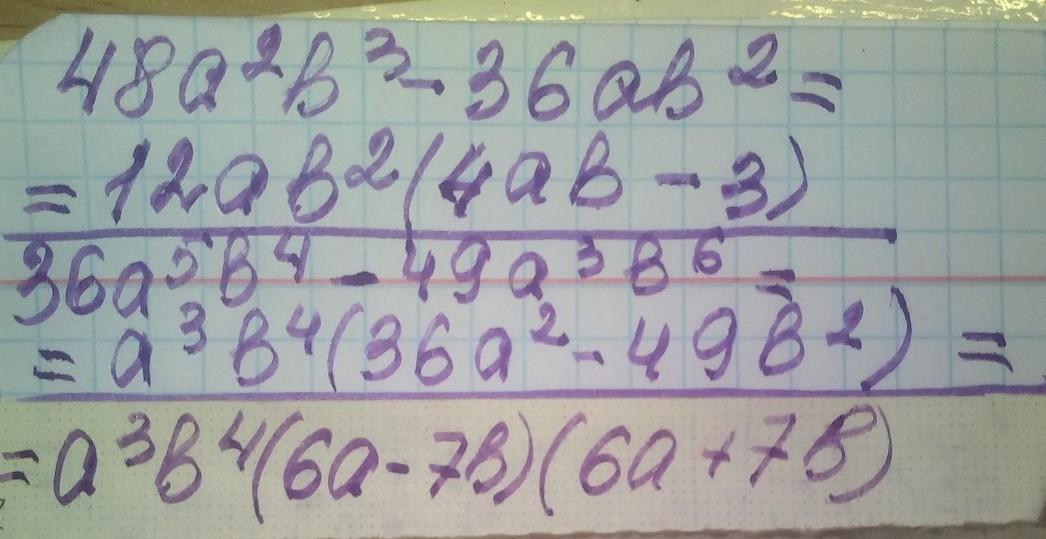 48a²b³-36ab²=
=12ab²(4ab-3)
36a⁵b⁴-49a³b⁶=
=a³b⁴(36a²-49b²)=
=a³b⁴(6a-7b)(6a+7b)